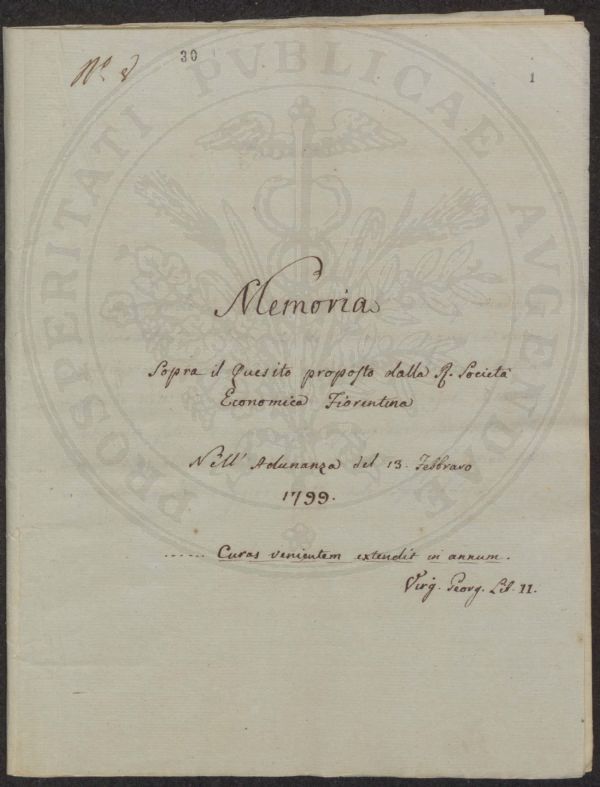 N.º 8
30
1
PROSPERITATI PVBLICAE AVGENDAE
Memoria
Sopra il Quesito proposto dalla R. Società
Economica Fiorentina
Nell' Adunanza del 13. Febbraro
1799.
...... Curas venientem extendit in annum.
Virg. Georg. Lib. II.